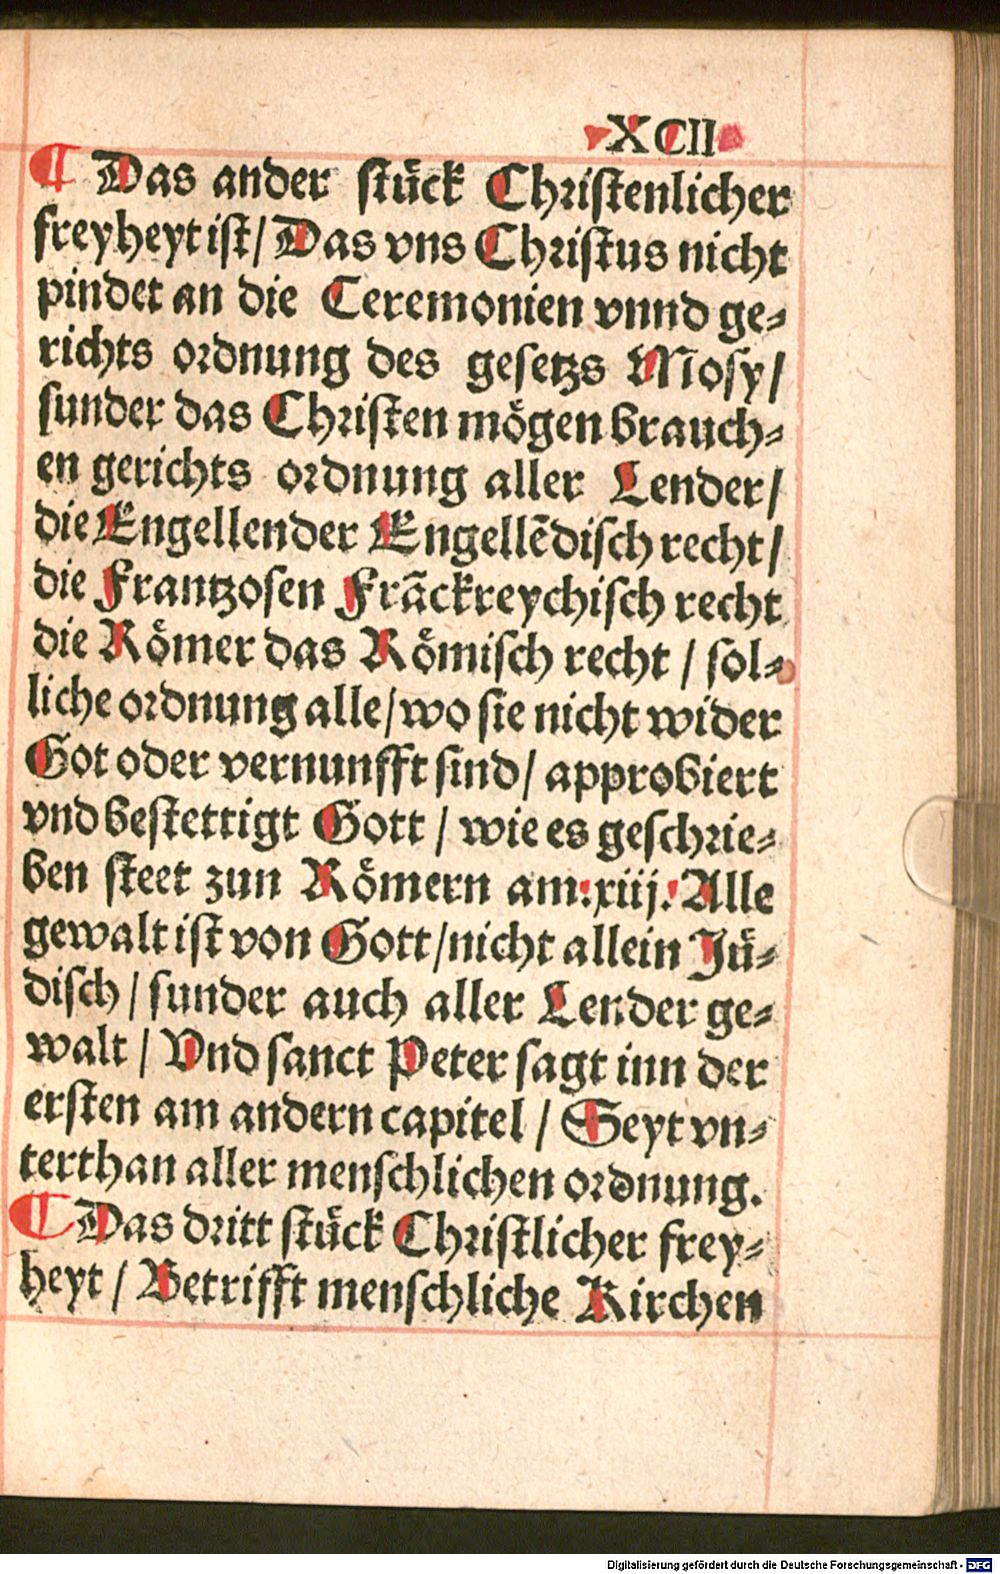 XCII
¶ Das ander stück Christenlicher
freyheyt ist/ Das vns Christus nicht
pindet an die Ceremonien vnnd ge⸗
richts ordnung des gesetzs Mosy/
sunder das Christen mögen brauch⸗
en gerichts ordnung aller Lender/
die Engellender Engellẽdisch recht/
die Frantzosen Frãckreychisch recht
die Römer das Römisch recht / sol⸗
liche ordnung alle/ wo sie nicht wider
Got oder vernunfft sind/ approbiert
vnd bestettigt Gott / wie es geschrie⸗
ben steet zun Römern am.xiij. Alle
gewalt ist von Gott/ nicht allein Jü⸗
disch/ sunder auch aller Lender ge⸗
walt / Vnd sanct Peter sagt inn der
ersten am andern capitel / Seyt vn⸗
terthan aller menschlichen ordnung.
¶ Das dritt stück Christlicher frey⸗
heyt / Betrifft menschliche Kirchen
Digitalisierung gefördert durch die Deutsche Forschungsgemeinschaft - DFG